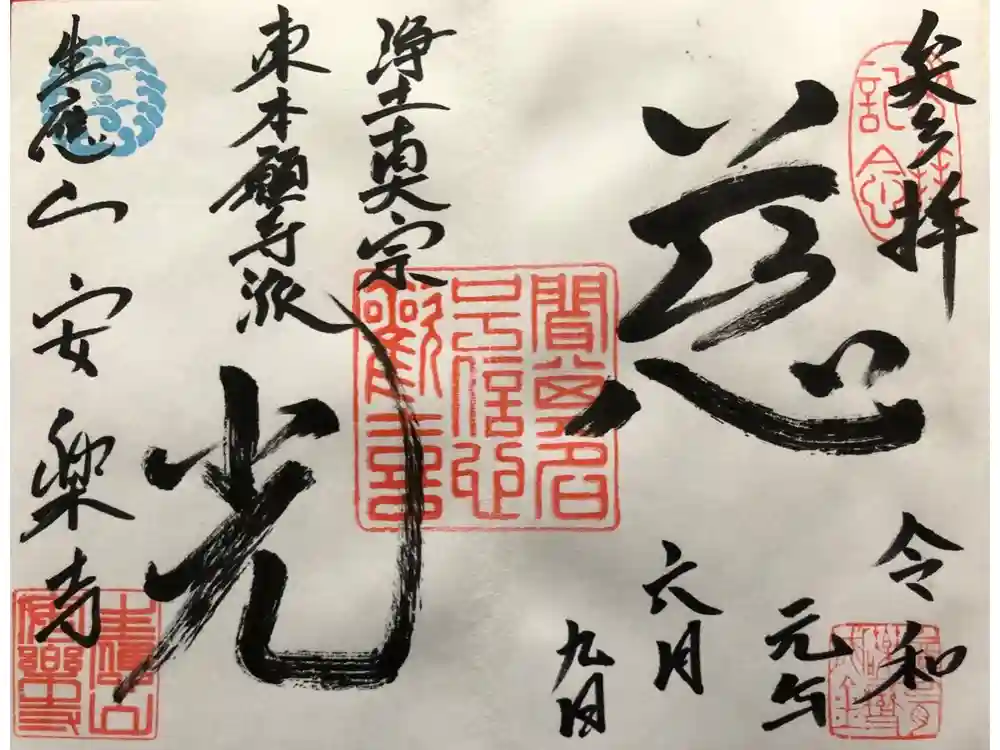 参拝
記念
慈光
令和
元年
六月
九日
聞其名号
信心歓喜
浄土真宗
東本願寺派
生應山安楽寺